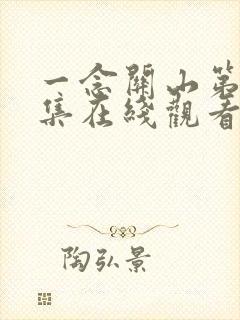 一念關山第
集在綫觀看
陶弘景